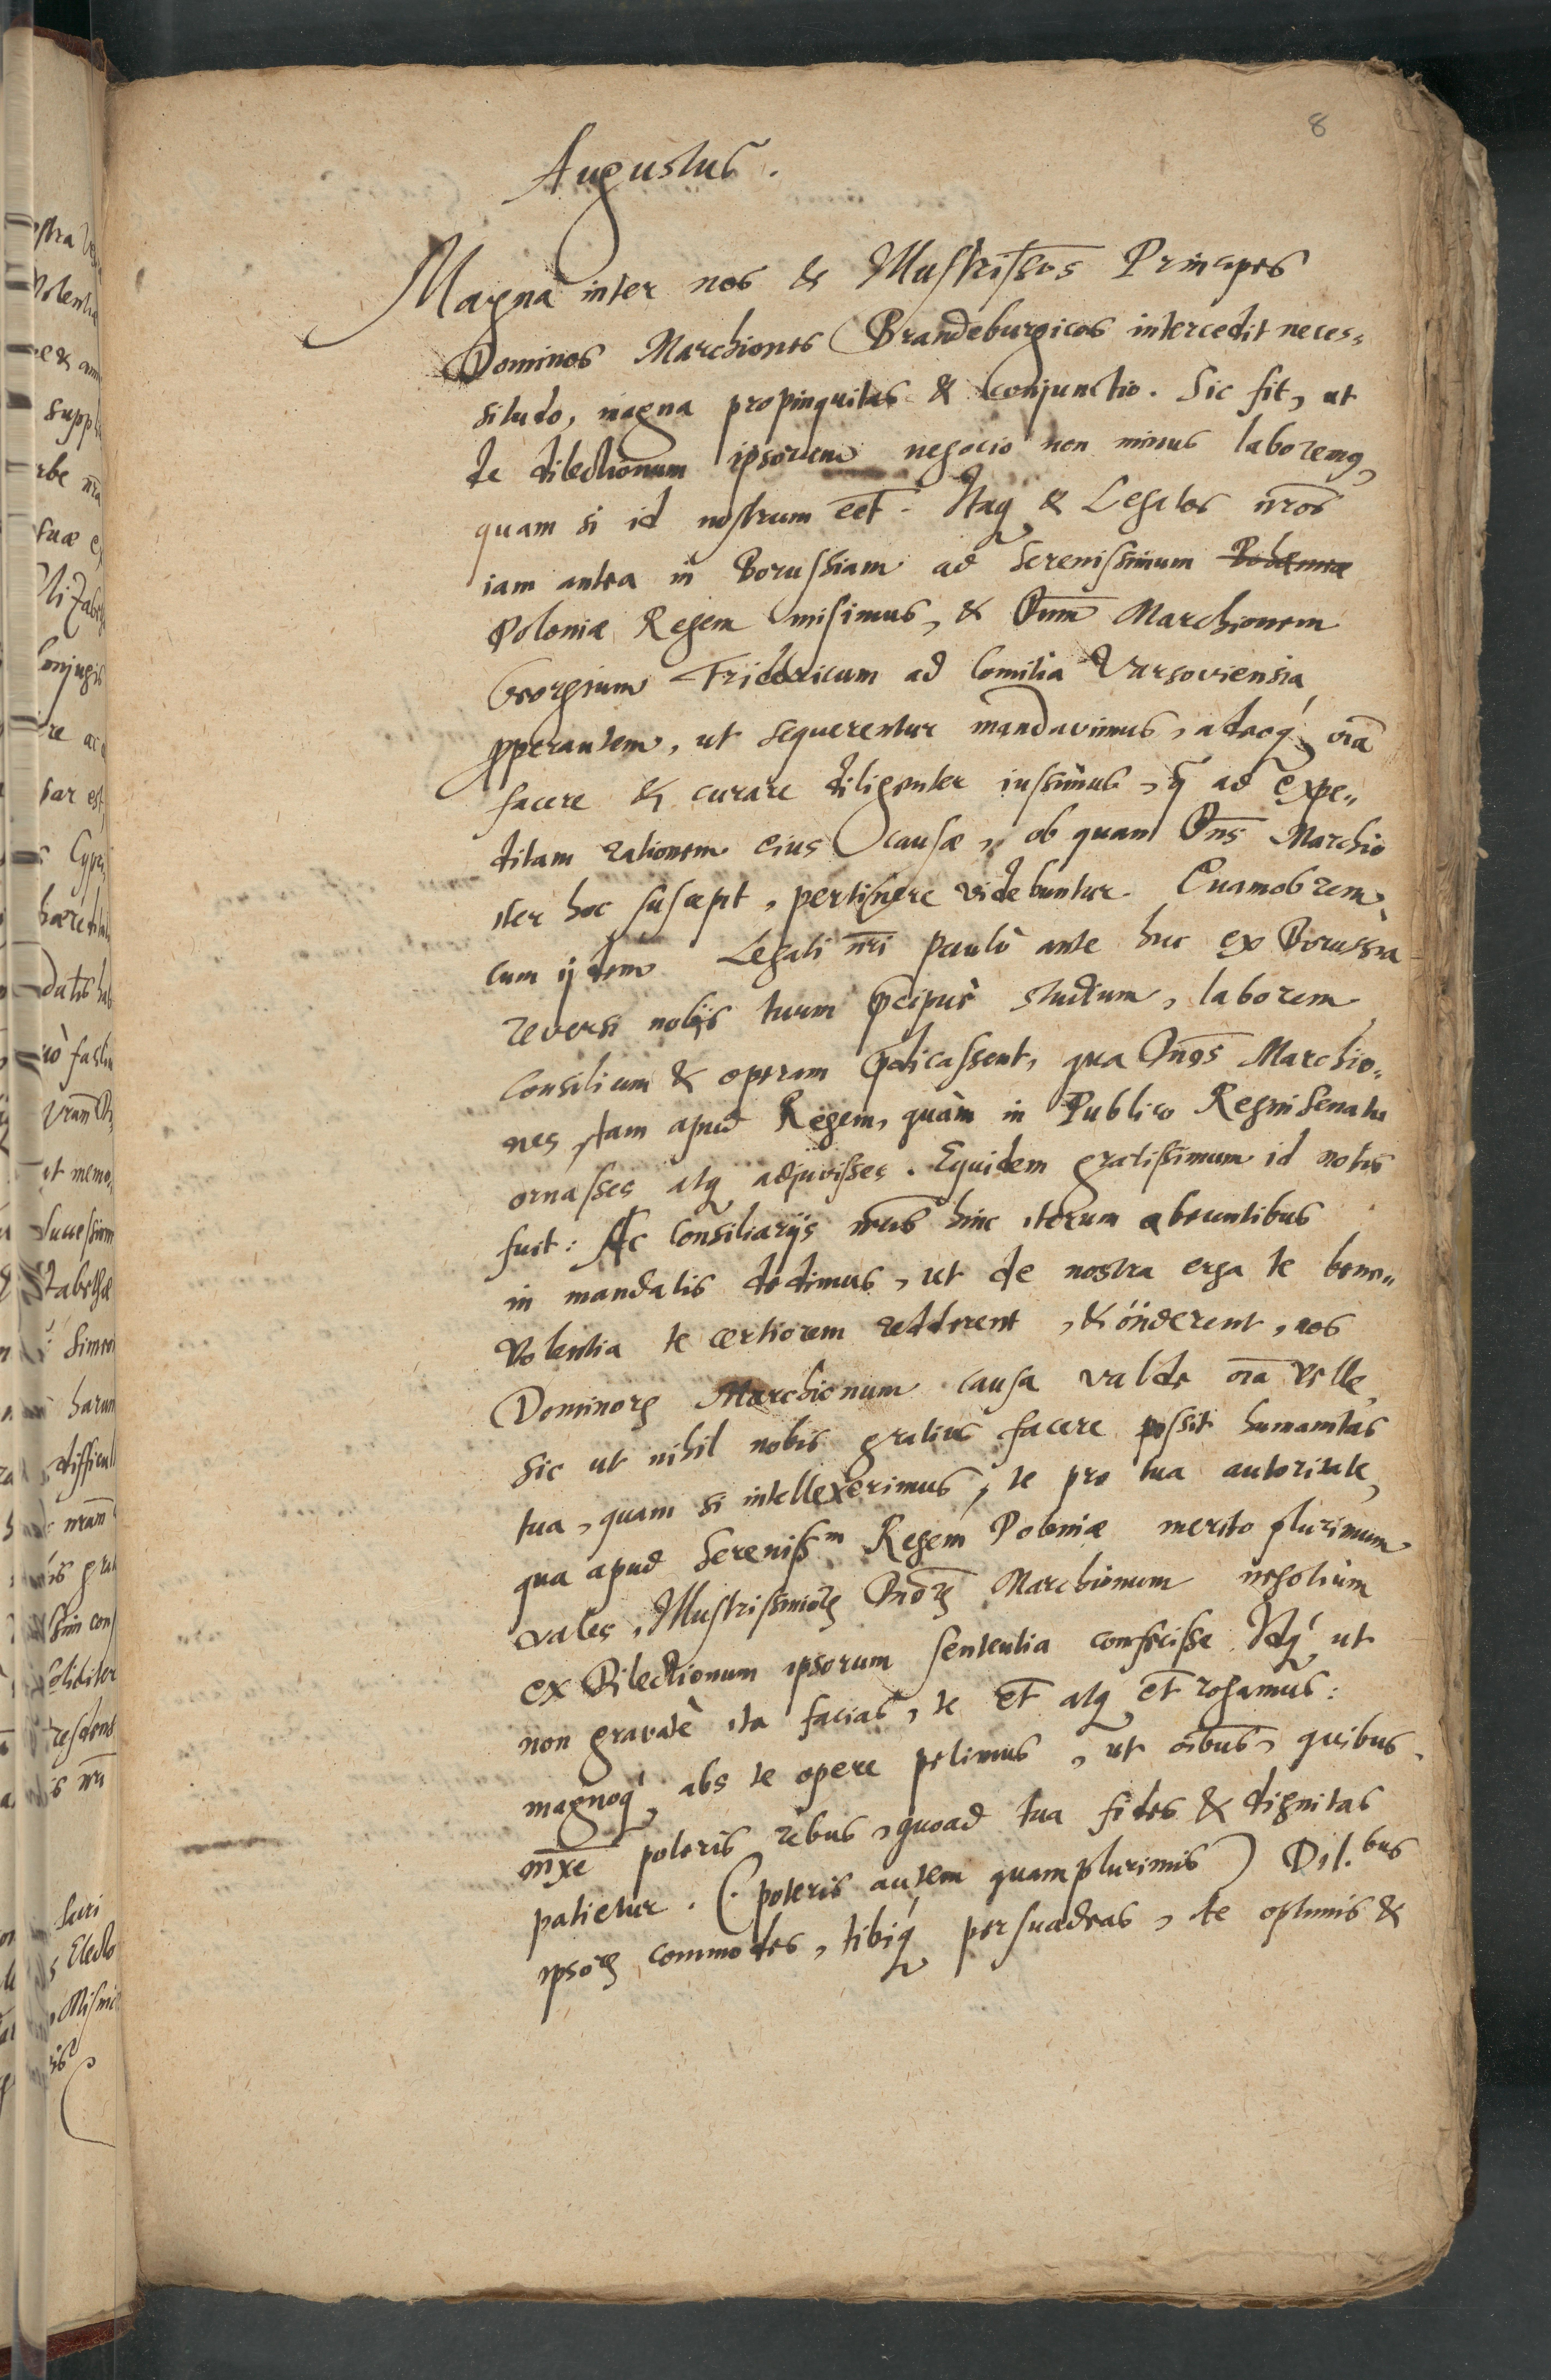 8
Augustus.
Magna inter nos & Illustriss̄os Principes
Dominos Marchiones Brandeburgicos intercedit neces-
situdo, magna propinquitas & conjunctio. Sic fit, ut
de dilectionum ipsorum negocio non minus laboremꝯ,
quam si id nostrum eēt. Itaqꝫ & Legatos nr̄os
iam antea in Borussiam ad Serenissimum Bohemiæ
Poloniæ Regem misimus, & Dnm̄ Marchionem
Georgium Fridericum ad Comitia Varsoviensia
ꝓperantem, ut sequerentur mandavimus, adeoqꝫ oīa
facere & curare diligenter iussimus, q̄ ad expe-
ditam rationem eius causæ, ob quam Dn̄s Marchio
iter hoc suscepit, pertinere videbuntur. Quamobrem
cum ijdem Legati nr̄i paulò ante huc ex Borussia
reversi nobis tuum p̄cipuè studium, laborem
consilium & operam p̄dicassent, qua Dn̄os Marchio-
nes tam apud Regem, quàm in Publico Regni Senatu
ornasses atqꝫ adjuvisses. Equidem gratissimum id nobis
fuit: Ac Consiliarijs nr̄is hinc iterum abeuntibus
in mandatis dedimus, ut de nostra erga te bene-
volentia te certiorem redderent, & on̄derent, nos
Dominorꝫ Marchionum causa valde oīa velle,
sic ut nihil nobis gratius facere possit humanitas
tua, quam si intellexerimus, te pro tua autoritate,
qua apud Sereniss.m Regem Poloniæ merito plurimum
vales, Illustrissimorꝫ Dn̄orꝫ Marchionum negotium
ex Dilectionum ipsorum sententia confecisse. Idqꝫ ut
non gravatè ita facias, te et̄ atqꝫ et̄ rogamus:
magnoqꝫ abs te opere petimus, ut oībus, quibus
mx̄e poteris rebus, quoad tua fides & dignitas
patietur. (poteris autem quamplurimis) Dil.bus
ipsorꝫ commodes, tibiqꝫ persuadeas, te optimis &